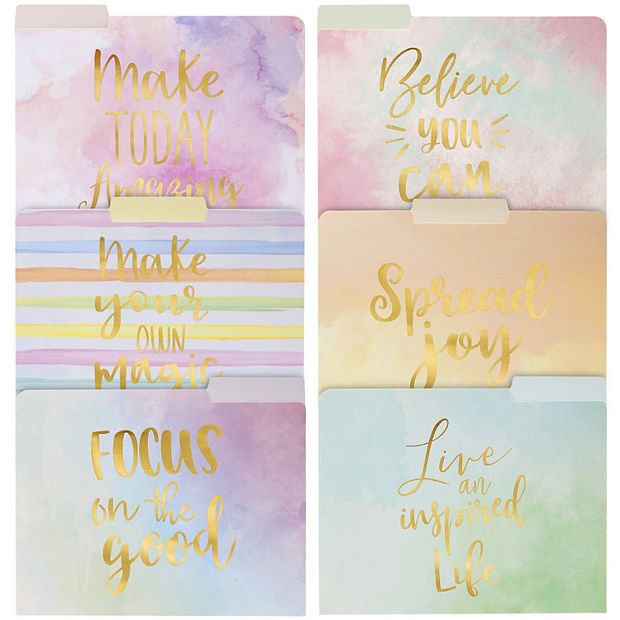 Make
TODAY
Amazing
Make
your
OWN
magic
FOCUS
on the
good
Believe
YOU
can
Spread
joy
Live
an
inspired
Life